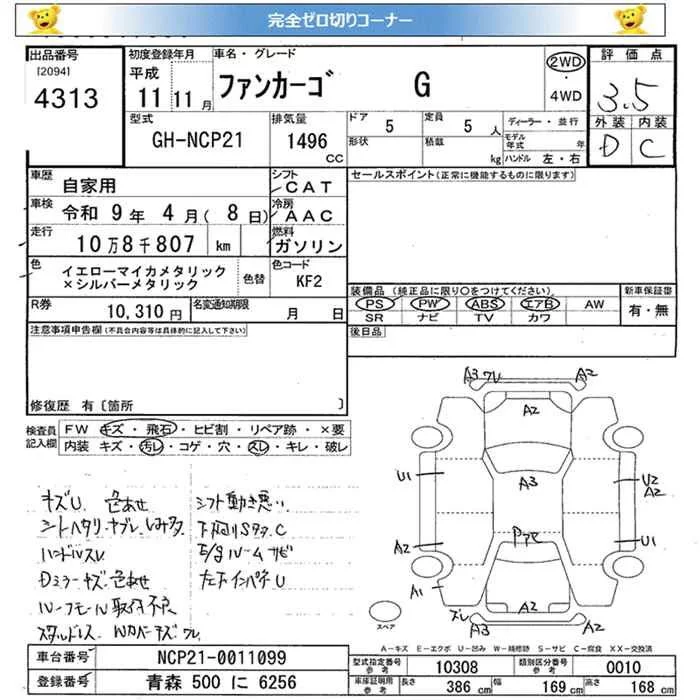 完全ゼロ切りコーナー
出品番号
[2094]
4313
初度登録年月
平成
11 11月
車名・グレード
ファンカーゴ G
2WD
4WD
評価点
3.5
外装 内装
D C
型式
GH-NCP21
排気量
1496
CC
ドア
5
定員
5 人
形状
積載
kg
ディーラー・並行
モデル年式 年
ハンドル 左・右
車歴
自家用
シフト
CAT
車検
令和 9年 4月( 8日)
冷房
AAC
走行
10万8千807 km
燃料
ガソリン
色
イエローマイカメタリック
×シルバーメタリック
色替
色コード
KF2
R券
10,310円
名変通知期限
月 日
セールスポイント(正常に機能するものに限ります)
装備品(純正品に限り○をつけてください)
PS PW ABS エアB AW
SR ナビ TV カワ
新車保証書
有・無
後日品
注意事項申告欄(不具合内容等は具体的に記入して下さい)
修復歴 有〔箇所 〕
検査員
記入欄
FW キズ・飛石・ヒビ割・リペア跡・×要
内装 キズ・汚レ・コゲ・穴・スレ・キレ・破レ
キズU 色あせ
ハンドルスレ
Dミラーキズ・色あせ
ルーフモール取付不良
シフト動き悪い
下廻りSタタC
E/Sルームサビ
左下インパネU
A3 ワレ
A2
A2
U1
A3
U2
A2
A2
U1
A1
A2
ズレ
A3
A2
スペア
A-キズ E-エクボ U-凹み W-補修跡 S-サビ C-腐食 XX-交換済
車台番号
NCP21-0011099
登録番号
青森 500 に 6256
型式指定番号
参考
10308
類別区分番号
参考
0010
車庫証明用
参考
長さ 386 cm
幅 169 cm
高さ 168 cm